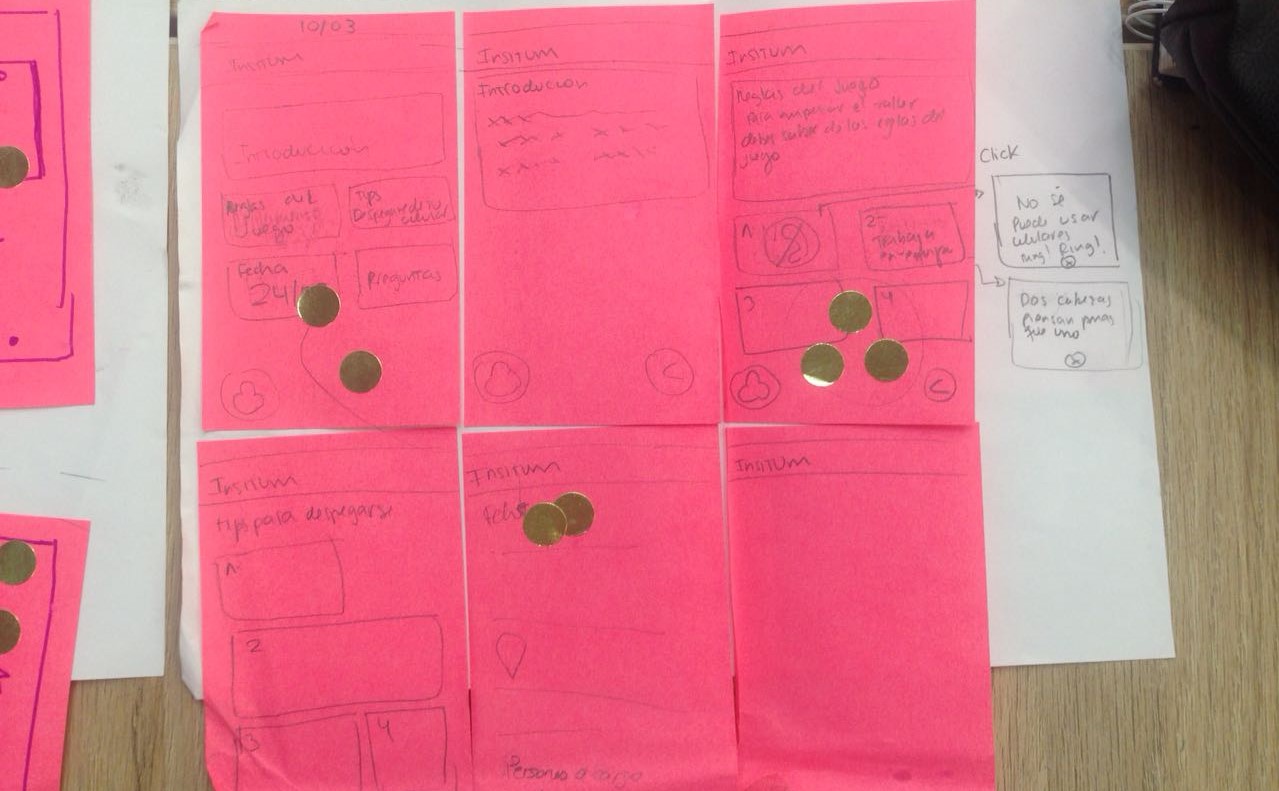 10/03
Insitum
Introduccion
Reglas del
Juego
Tips
Despegarse de tu
celular
Fecha
24/
Preguntas
Insitum
Introducion
xxx
Insitum
Reglas del Juego
Para empezar el taller
debes saber de las reglas del
juego
1
2
Trabaja
en equipo
3
4
Click
No sé
Puede usar
celulares
Ring!
Dos cabezas
piensan
que uno
Insitum
tips para despegarse
1
2
3
4
Insitum
Persona a cargo
Insitum